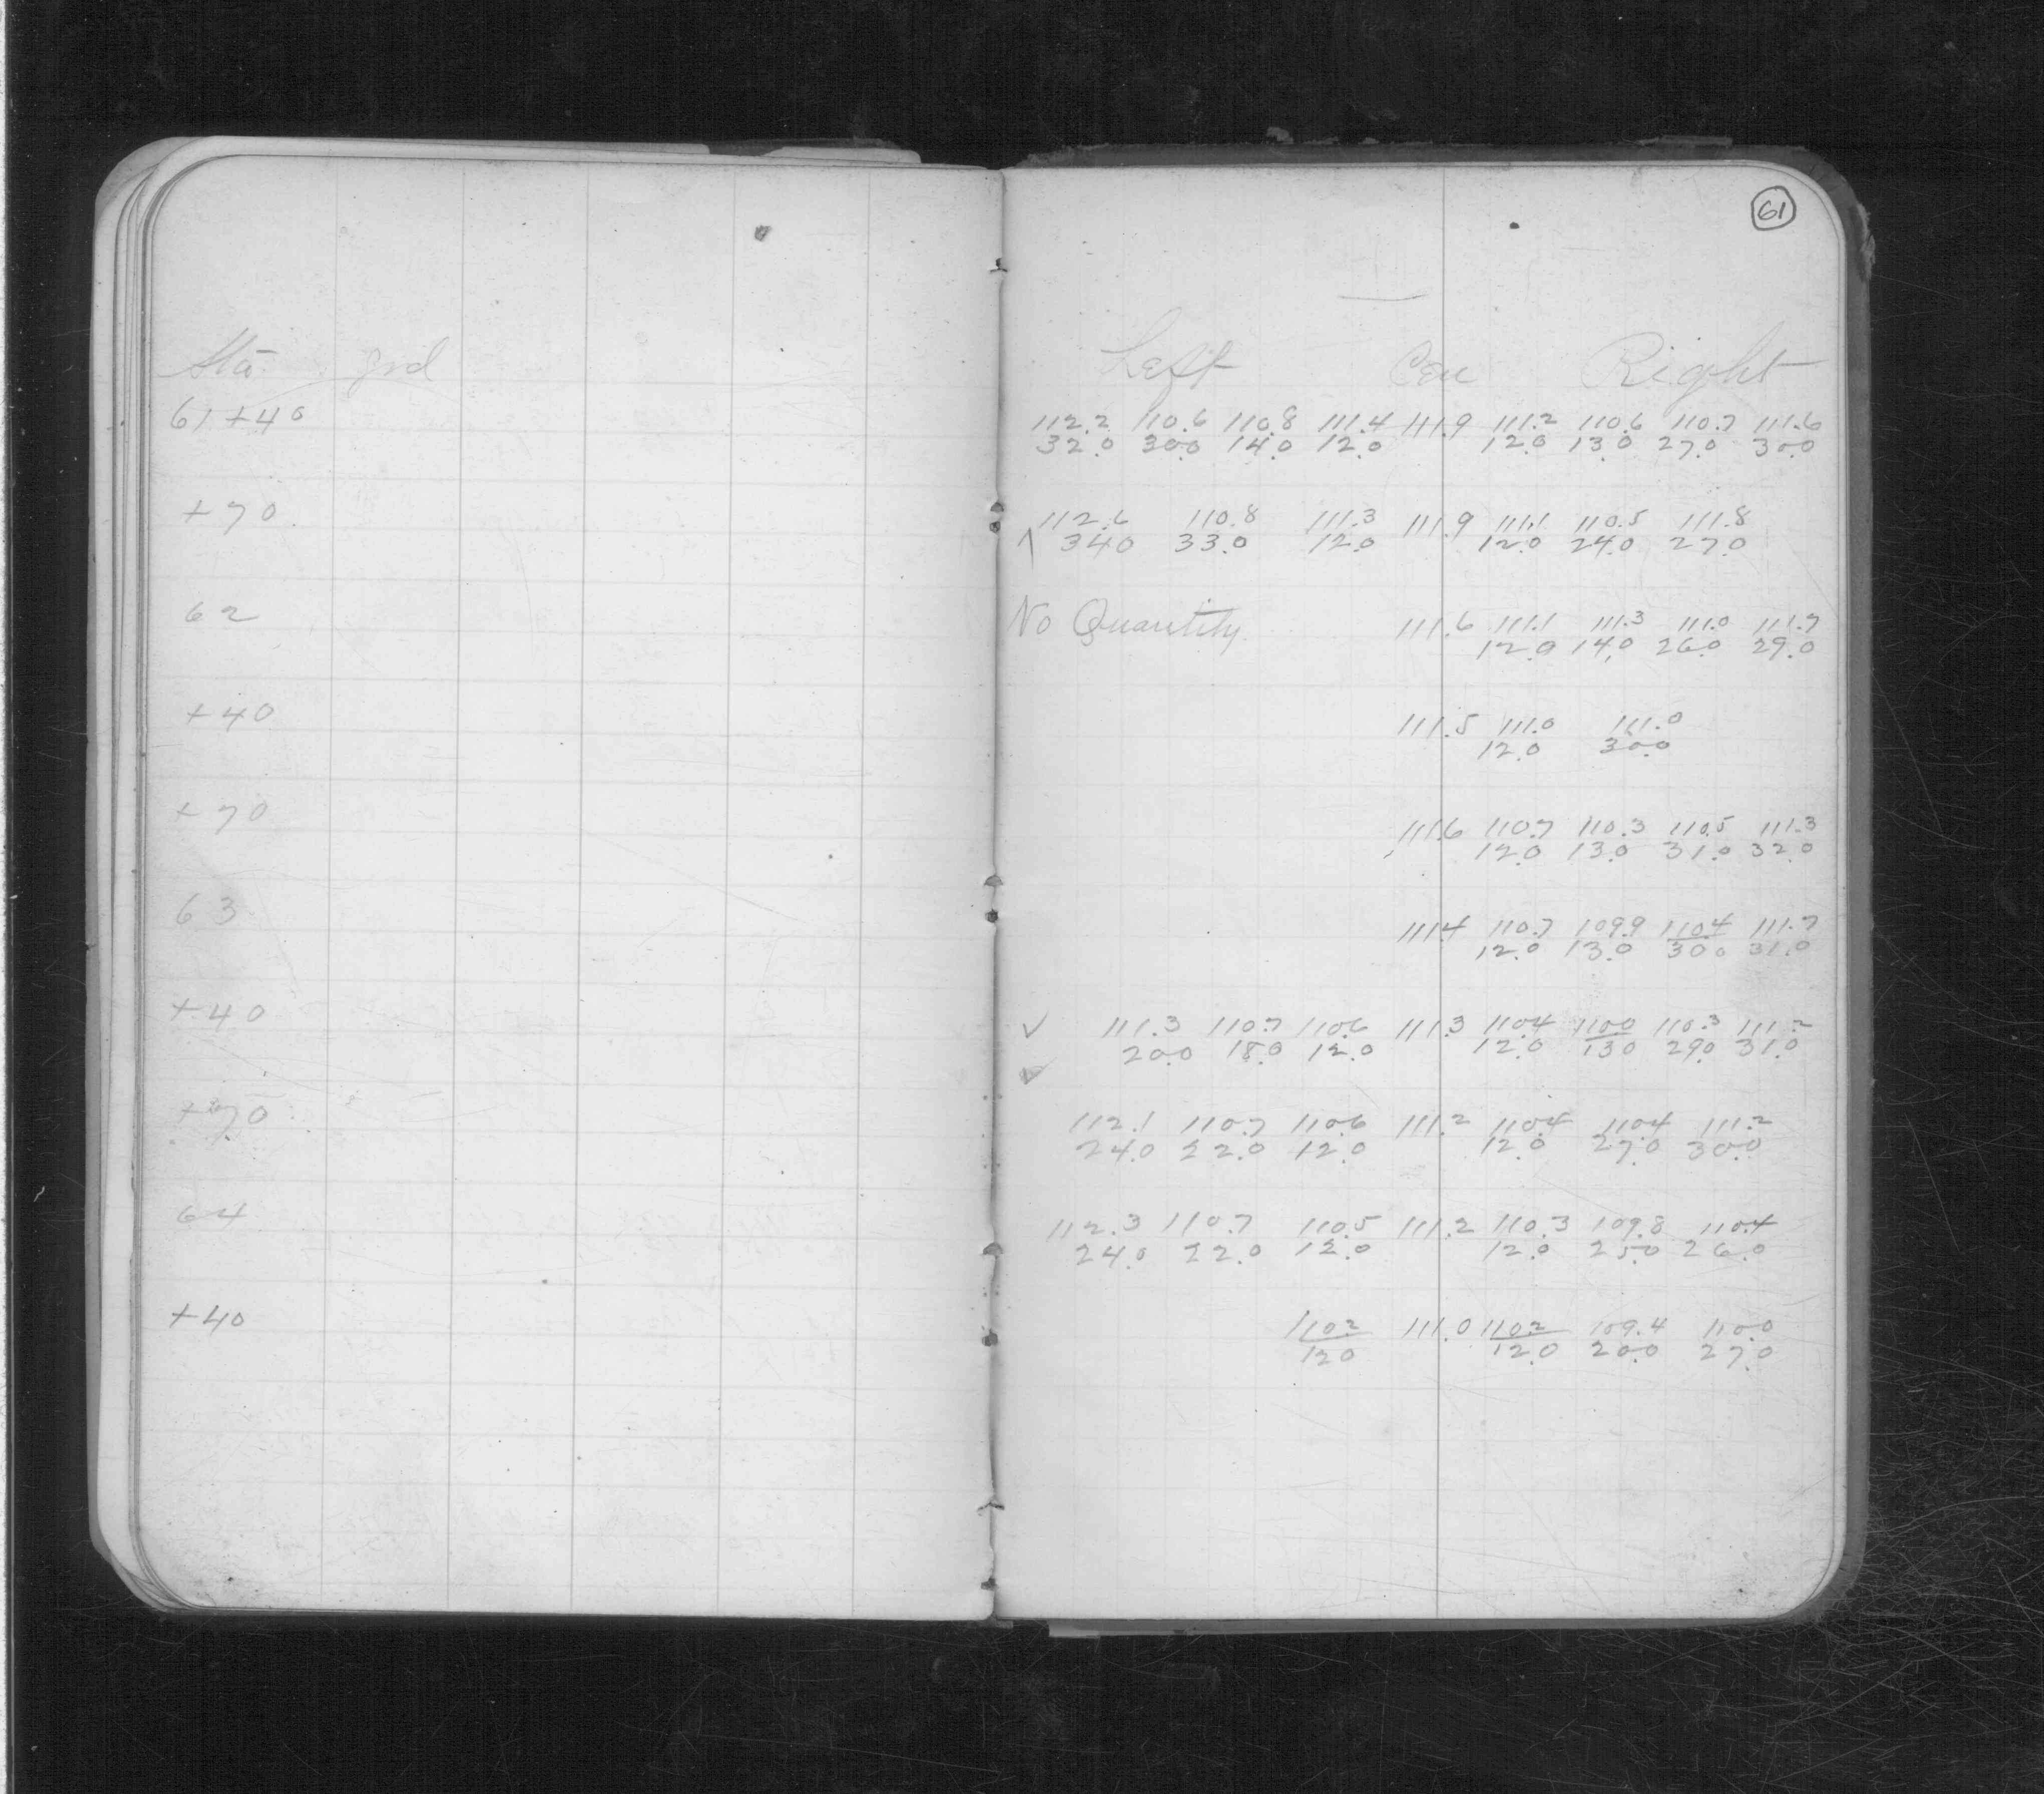 61
Sta. grd Left Cen Right
61+40 112.2 110.6 110.8 111.4 111.9 111.2 110.6 110.7 111.6
32.0 30.0 14.0 12.0 12.0 13.0 27.0 30.0
+70 112.6 110.8 111.3 111.9 111.1 110.5 111.8
34.0 33.0 12.0 12.0 24.0 27.0
62 No Quantity 111.6 111.1 111.3 111.0 111.7
12.0 14.0 26.0 29.0
+40 111.5 111.0 111.0
12.0 30.0
+70 111.6 110.7 110.3 110.5 111.3
12.0 13.0 31.0 32.0
63 111.4 110.7 109.9 110.4 111.7
12.0 13.0 30.0 31.0
+40 111.3 110.7 110.6 111.3 110.4 110.0 110.3 111.2
20.0 18.0 12.0 12.0 13.0 29.0 31.0
+70 112.1 110.7 110.6 111.2 110.4 110.4 111.2
24.0 22.0 12.0 12.0 27.0 30.0
64 112.3 110.7 110.5 111.2 110.3 109.8 110.4
24.0 22.0 12.0 12.0 25.0 26.0
+40 110.2 111.0 110.2 109.4 110.0
12.0 12.0 20.0 27.0